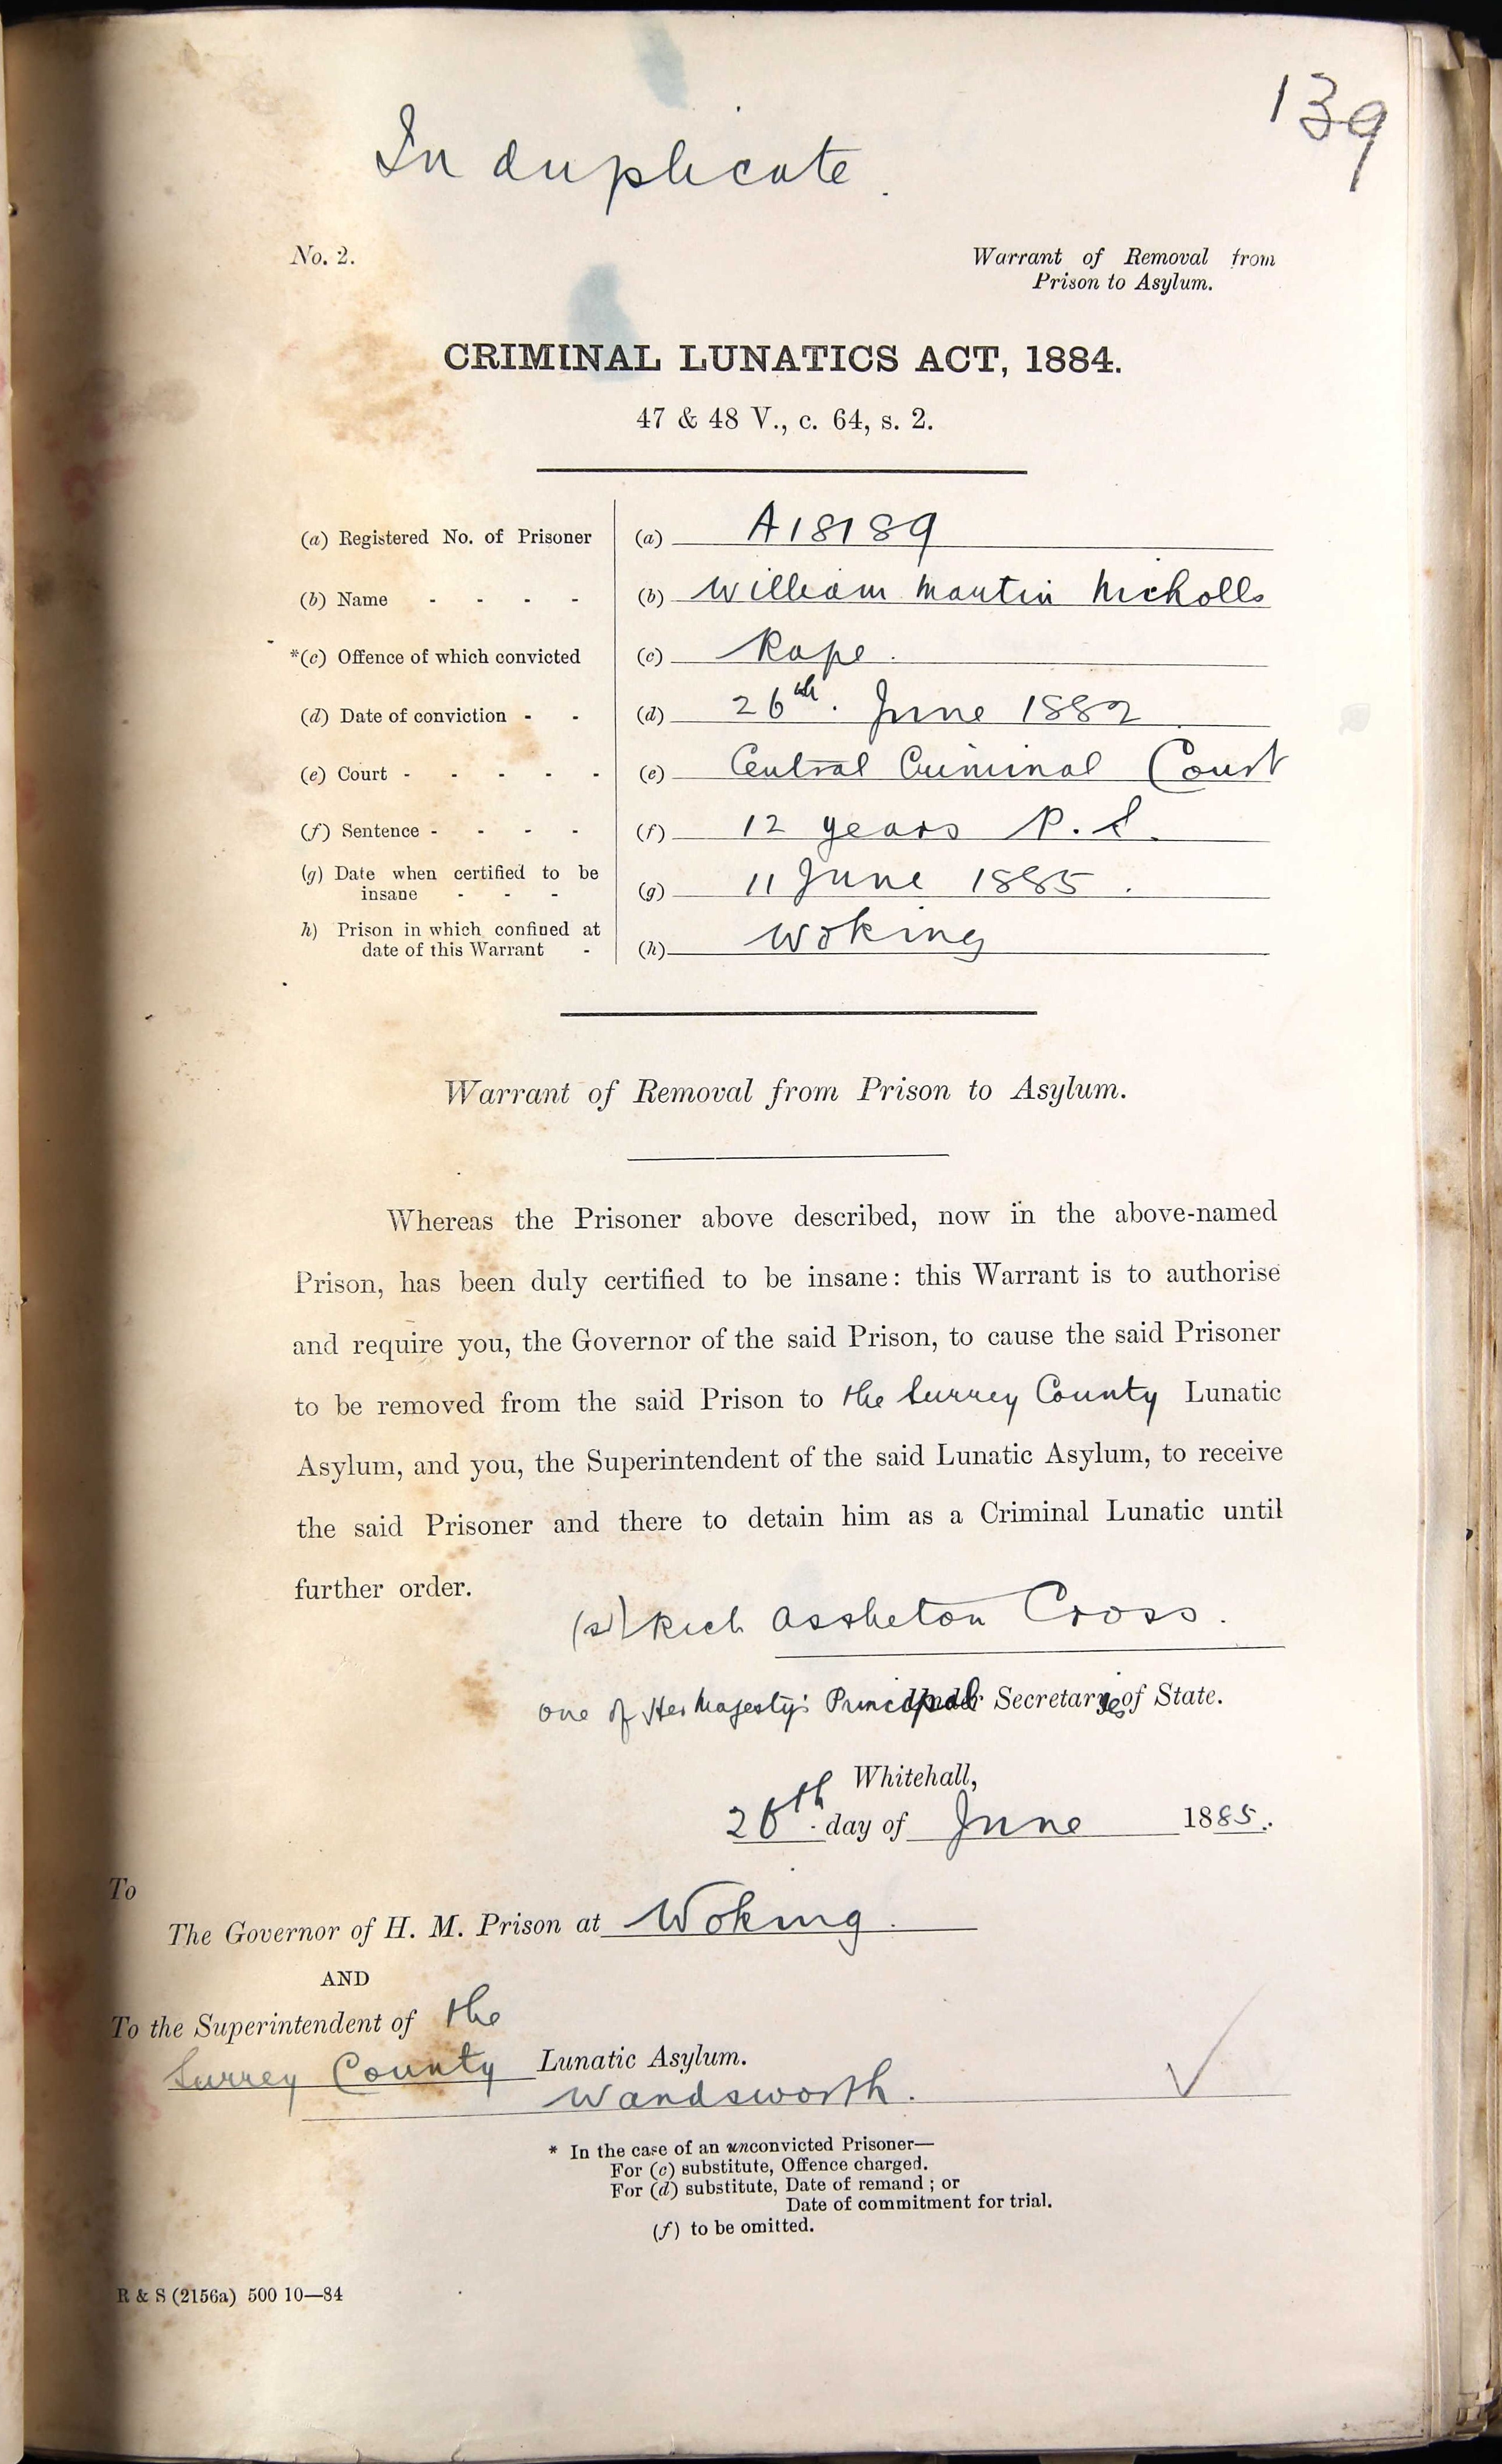 139
In duplicate.
No. 2.
Warrant of Removal from
Prison to Asylum.
CRIMINAL LUNATICS ACT, 1884.
47 & 48 V., c. 64, s. 2.
(a) Registered No. of Prisoner (a) A18189
(b) Name - - - - (b) William Martin Nicholls
*(c) Offence of which convicted (c) Rape.
(d) Date of conviction - - (d) 26th. June 1882
(e) Court - - - - - (e) Central Criminal Court
(f) Sentence - - - - (f) 12 years P.S.
(g) Date when certified to be
insane - - - (g) 11 June 1885.
h) Prison in which confined at
date of this Warrant - (h) Woking
Warrant of Removal from Prison to Asylum.
Whereas the Prisoner above described, now in the above-named
Prison, has been duly certified to be insane: this Warrant is to authorise
and require you, the Governor of the said Prison, to cause the said Prisoner
to be removed from the said Prison to the Surrey County Lunatic
Asylum, and you, the Superintendent of the said Lunatic Asylum, to receive
the said Prisoner and there to detain him as a Criminal Lunatic until
further order.
(s) Rich Assheton Cross.
one of Her Majesty's Principal Secretaries of State.
Whitehall,
26th. day of June 1885.
To
The Governor of H. M. Prison at Woking.
AND
To the Superintendent of the
Surrey County Lunatic Asylum.
Wandsworth.
* In the case of an unconvicted Prisoner—
For (c) substitute, Offence charged.
For (d) substitute, Date of remand; or
Date of commitment for trial.
(f) to be omitted.
R & S (2156a) 500 10—84